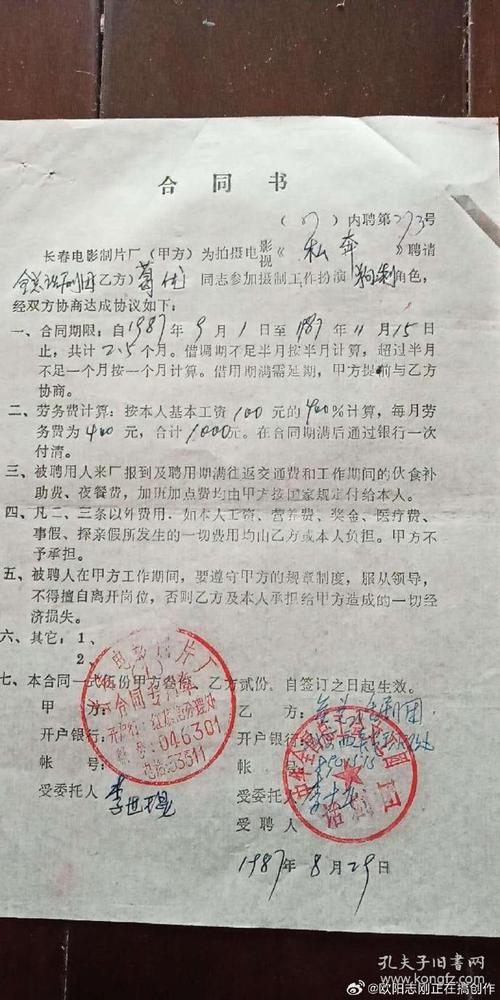 合同书
(87)内聘第273号
长春电影制片厂(甲方)为拍摄电影视《私奔》聘请
全总话剧团乙方)葛优同志参加摄制工作扮演 角色,
经双方协商达成协议如下:
一、合同期限:自1987年9月1日至1987年11月15日
止,共计2.5个月。借调期不足半月按半月计算,超过半月
不足一个月按一个月计算。借用期满需延期,甲方提前与乙方
协商。
二、劳务费计算:按本人基本工资100元的400%计算,每月劳
务费为400元,合计1000元。在合同期满后通过银行一次
付清。
三、被聘用人来厂报到及聘用期满往返交通费和工作期间的伙食补
助费、夜餐费,加班加点费均由甲方按国家规定付给本人。
四、凡二、三条以外费用,如本人工资、营养费、奖金、医疗费、
事假、探亲假所发生的一切费用均由乙方或本人负担。甲方不
予承担。
五、被聘人在甲方工作期间,要遵守甲方的规章制度,服从领导,
不得擅自离开岗位,否则乙方及本人承担给甲方造成的一切经
济损失。
六、其它:1、
2、
七、本合同一式伍份甲方叁份,乙方贰份。自签订之日起生效。
甲方:
开户银行:
帐号:
受委托人
李世琨
长春电影制片厂
合同专用章
开户行:红旗街办理处
帐号:046301
电话:53311
乙方:全总话剧团
开户银行:
帐号:
受委托人
受聘人
话剧团
1987年8月29日
孔夫子旧书网
@欧阳志刚正在搞创作